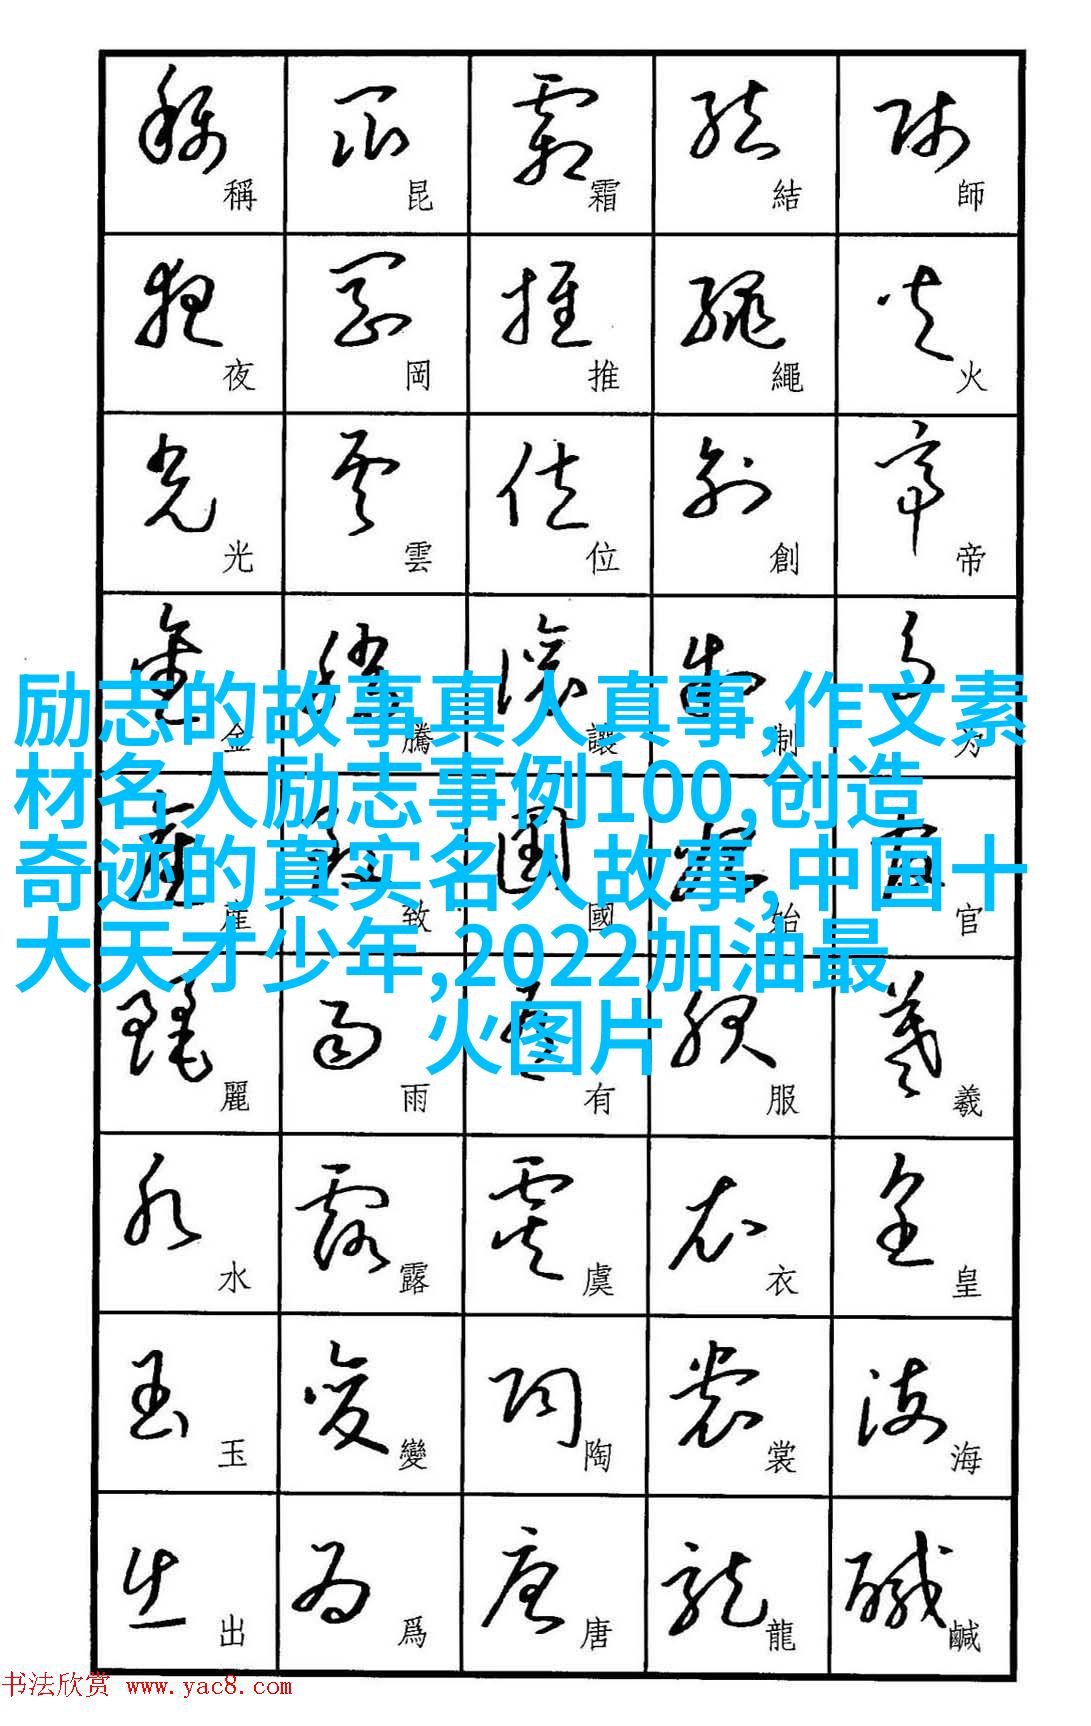 稱夜光金産麗水玉出
昆岡雲騰致雨露變爲
霜推位讓國有虞陶唐
結繩創制始服衣裳龍
師火帝官羲皇海鹹
励志的故事真人真事,作文素
材名人励志事例100,创造
奇迹的真实名人故事,中国十
大天才少年,2022加油最
火图片
书法欣赏 www.yac8.com